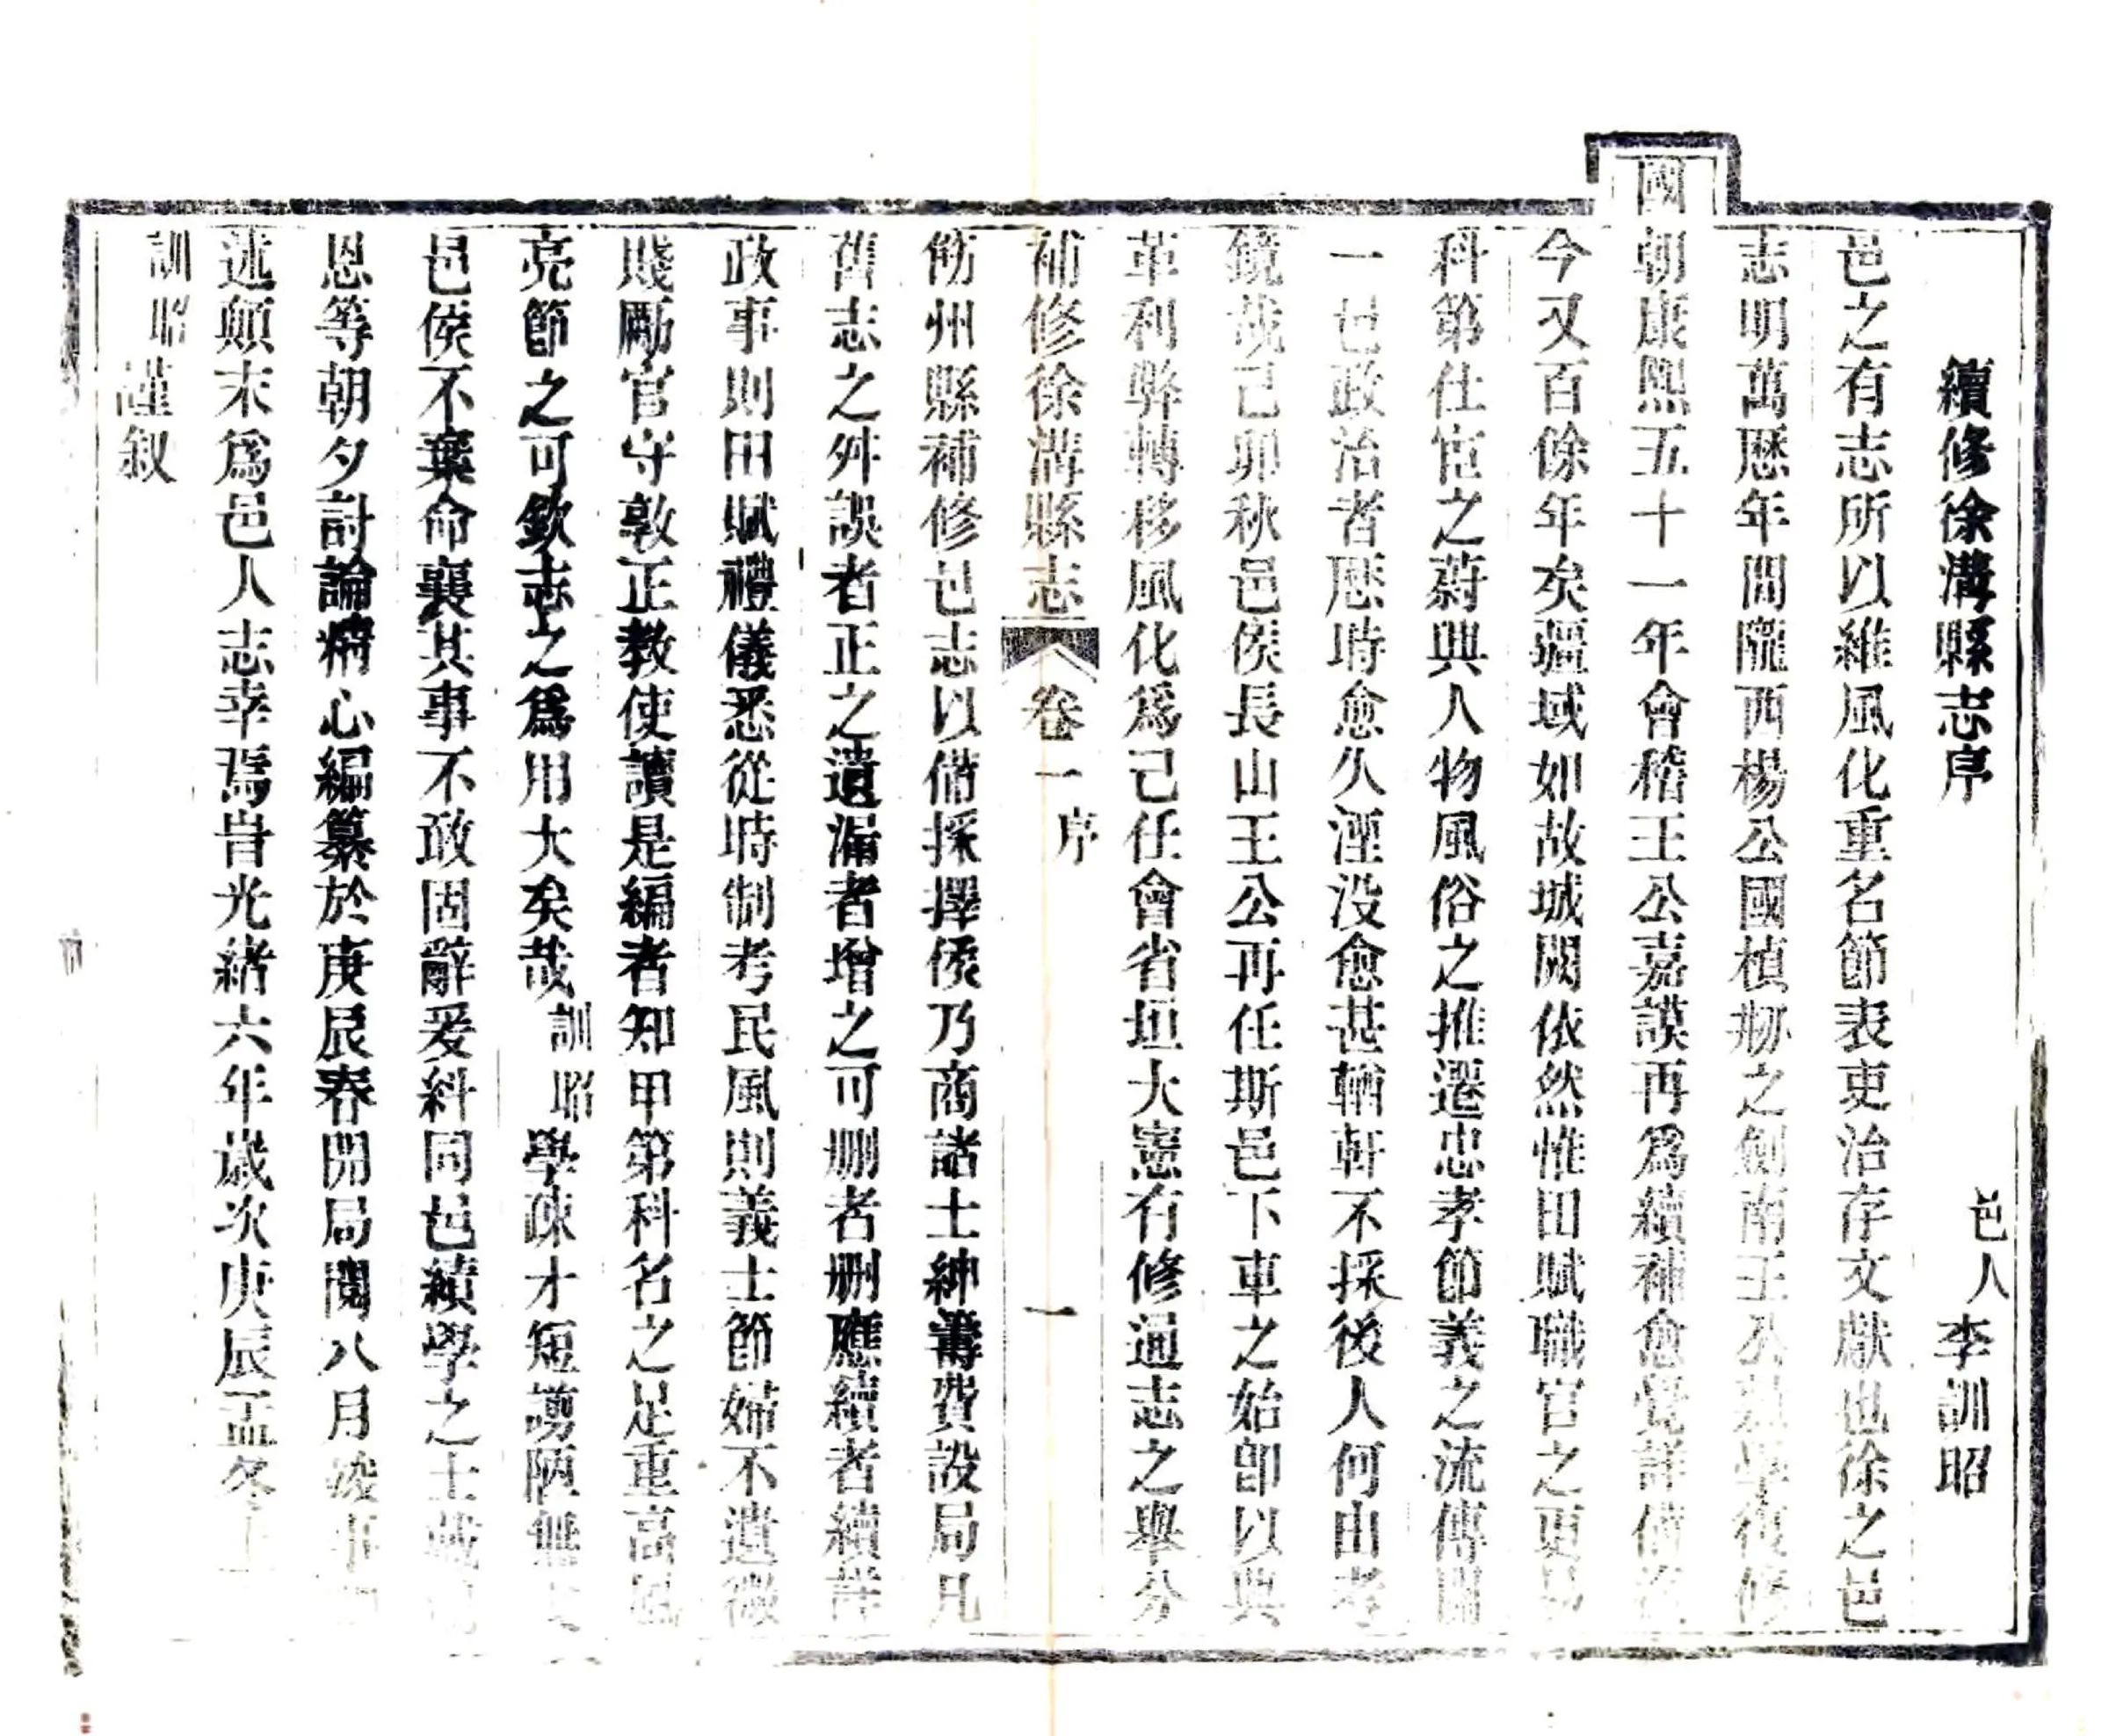 續修徐溝縣志序
邑人 李訓昭
邑之有志所以維風化重名節表吏治存文獻也徐之邑
志明萬厯年間隴西楊公國楨剏之劍南王公 學復修
國朝康熙五十一年會稽王公嘉謨再爲續補愈覺詳備
今又百餘年矣疆域如故城闕依然惟田賦職官之更易
科第仕宦之蔚興人物風俗之推遷忠孝節義之流傳
一邑政治者厯時愈久湮没愈甚輶軒不採後人何由考
鏡哉己卯秋邑侯長山王公再任斯邑下車之始卽以興
革利弊轉移風化爲己任會省垣大憲有修通志之舉分
補修徐溝縣志 卷一 序 一
飭州縣補修邑志以備採擇侯乃商諸士紳籌費設局凡
舊志之舛誤者正之遺漏者增之可刪者删應續者續詳
政事則田賦禮儀悉從時制考民風則義士節婦不遺微
賤勵官守敦正教使讀是編者知甲第科名之足重高風
亮節之可欽志之爲用大矣哉訓昭學疎才短謭陋無
邑侯不棄命襄其事不敢固辭爰糾同邑績學之士
恩等朝夕討論精心編纂於庚辰春開局閱八月竣事
述顛末爲邑人志幸焉旹光緒六年歲次庚辰孟冬
訓昭謹叙